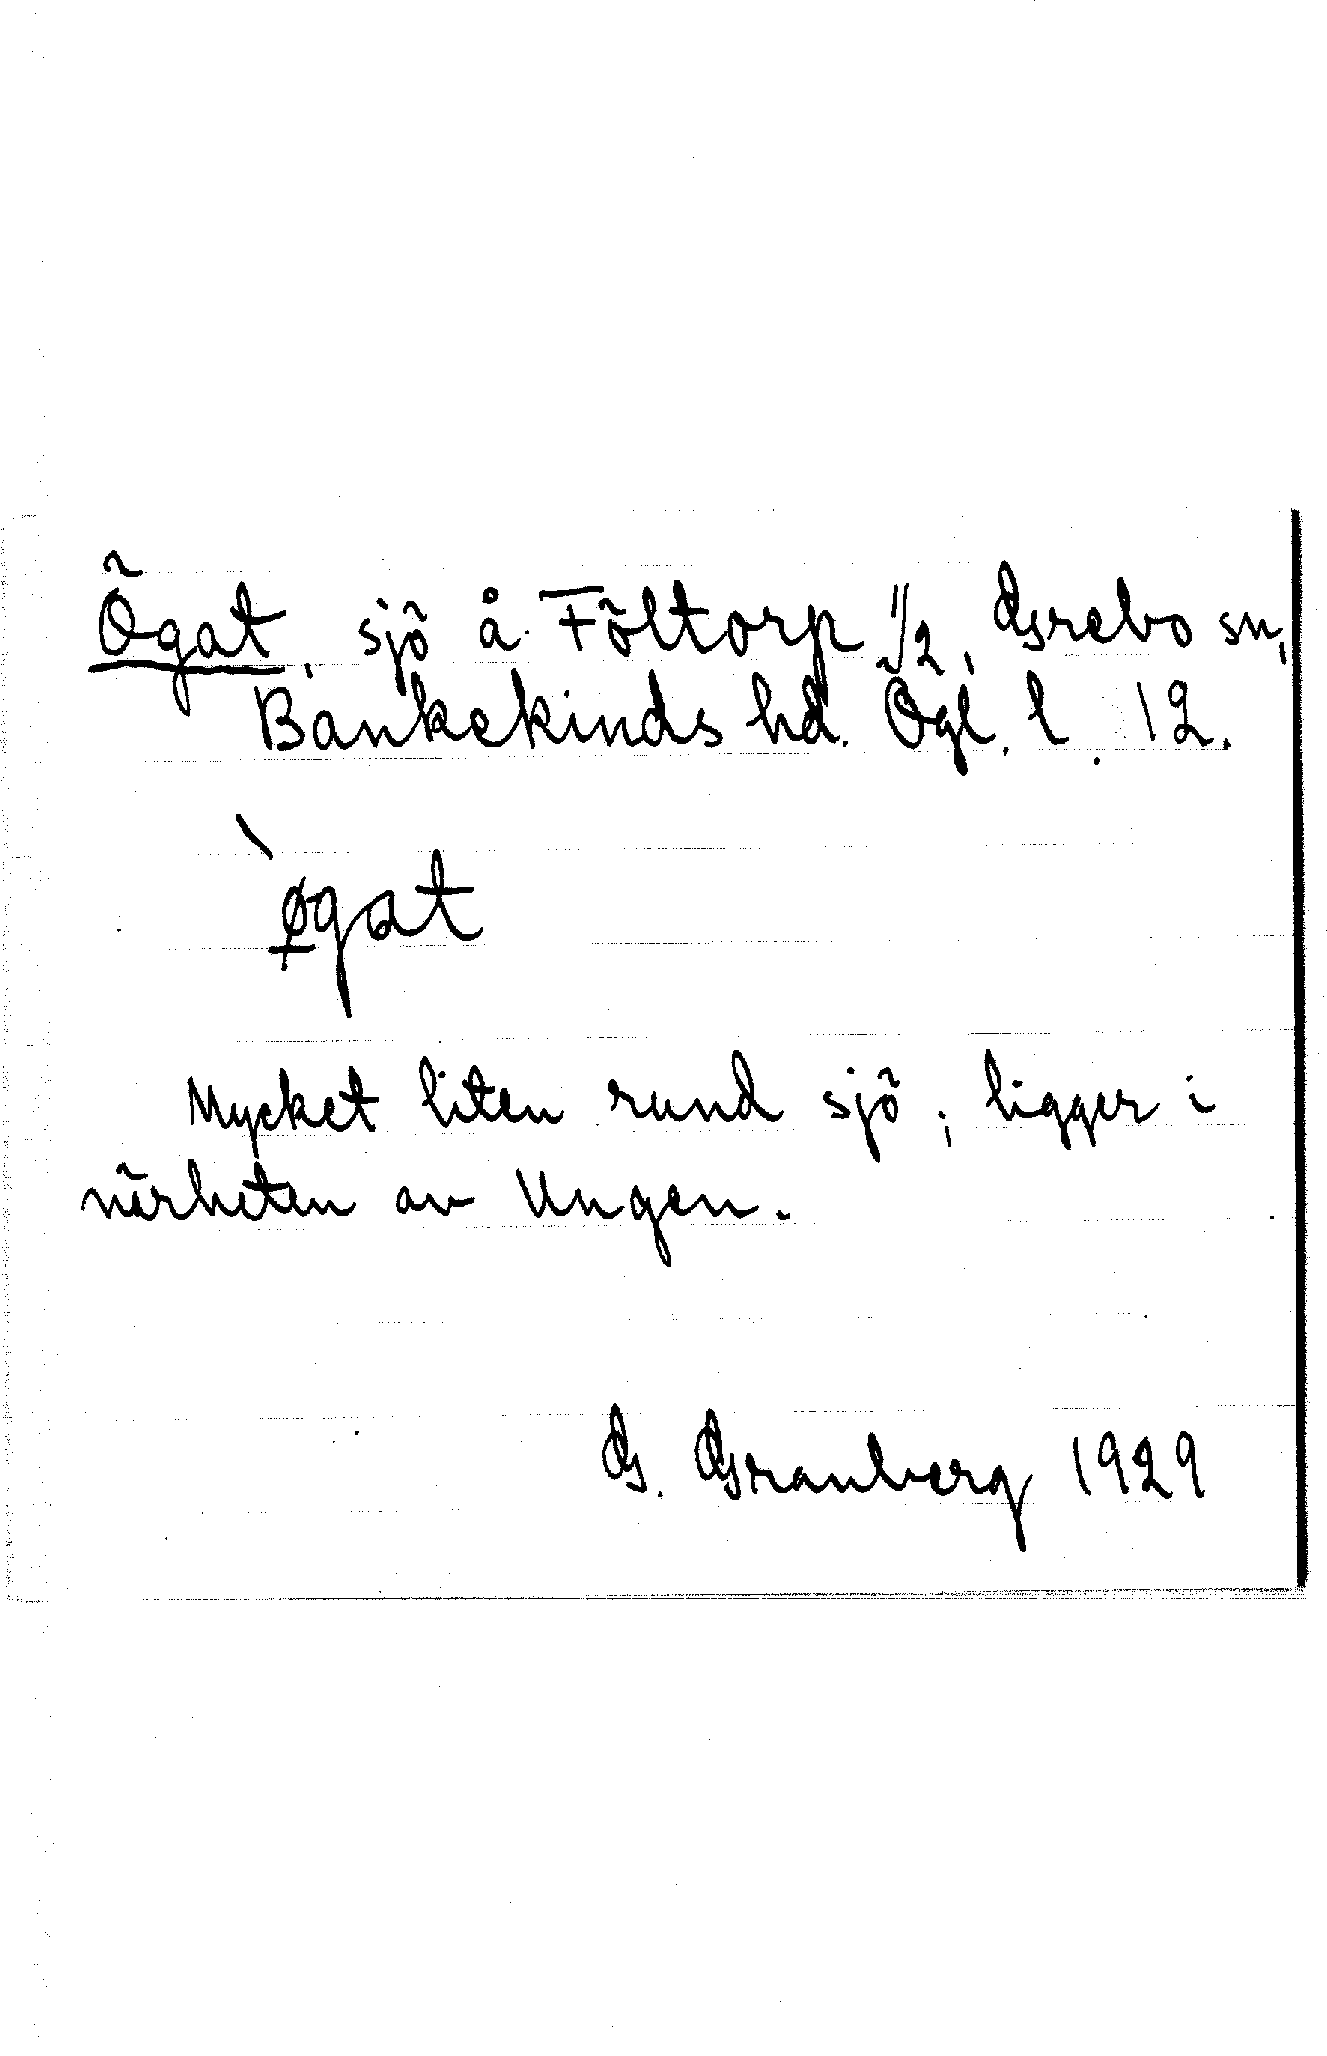 Ögat, sjö å Föltorp 1/2, Grebo sn,
Bankekinds hd. Ögl. l. 12.
`øgat
Mycket liten rund sjö; ligger i
närheten av Ungen.
G. Granberg 1929